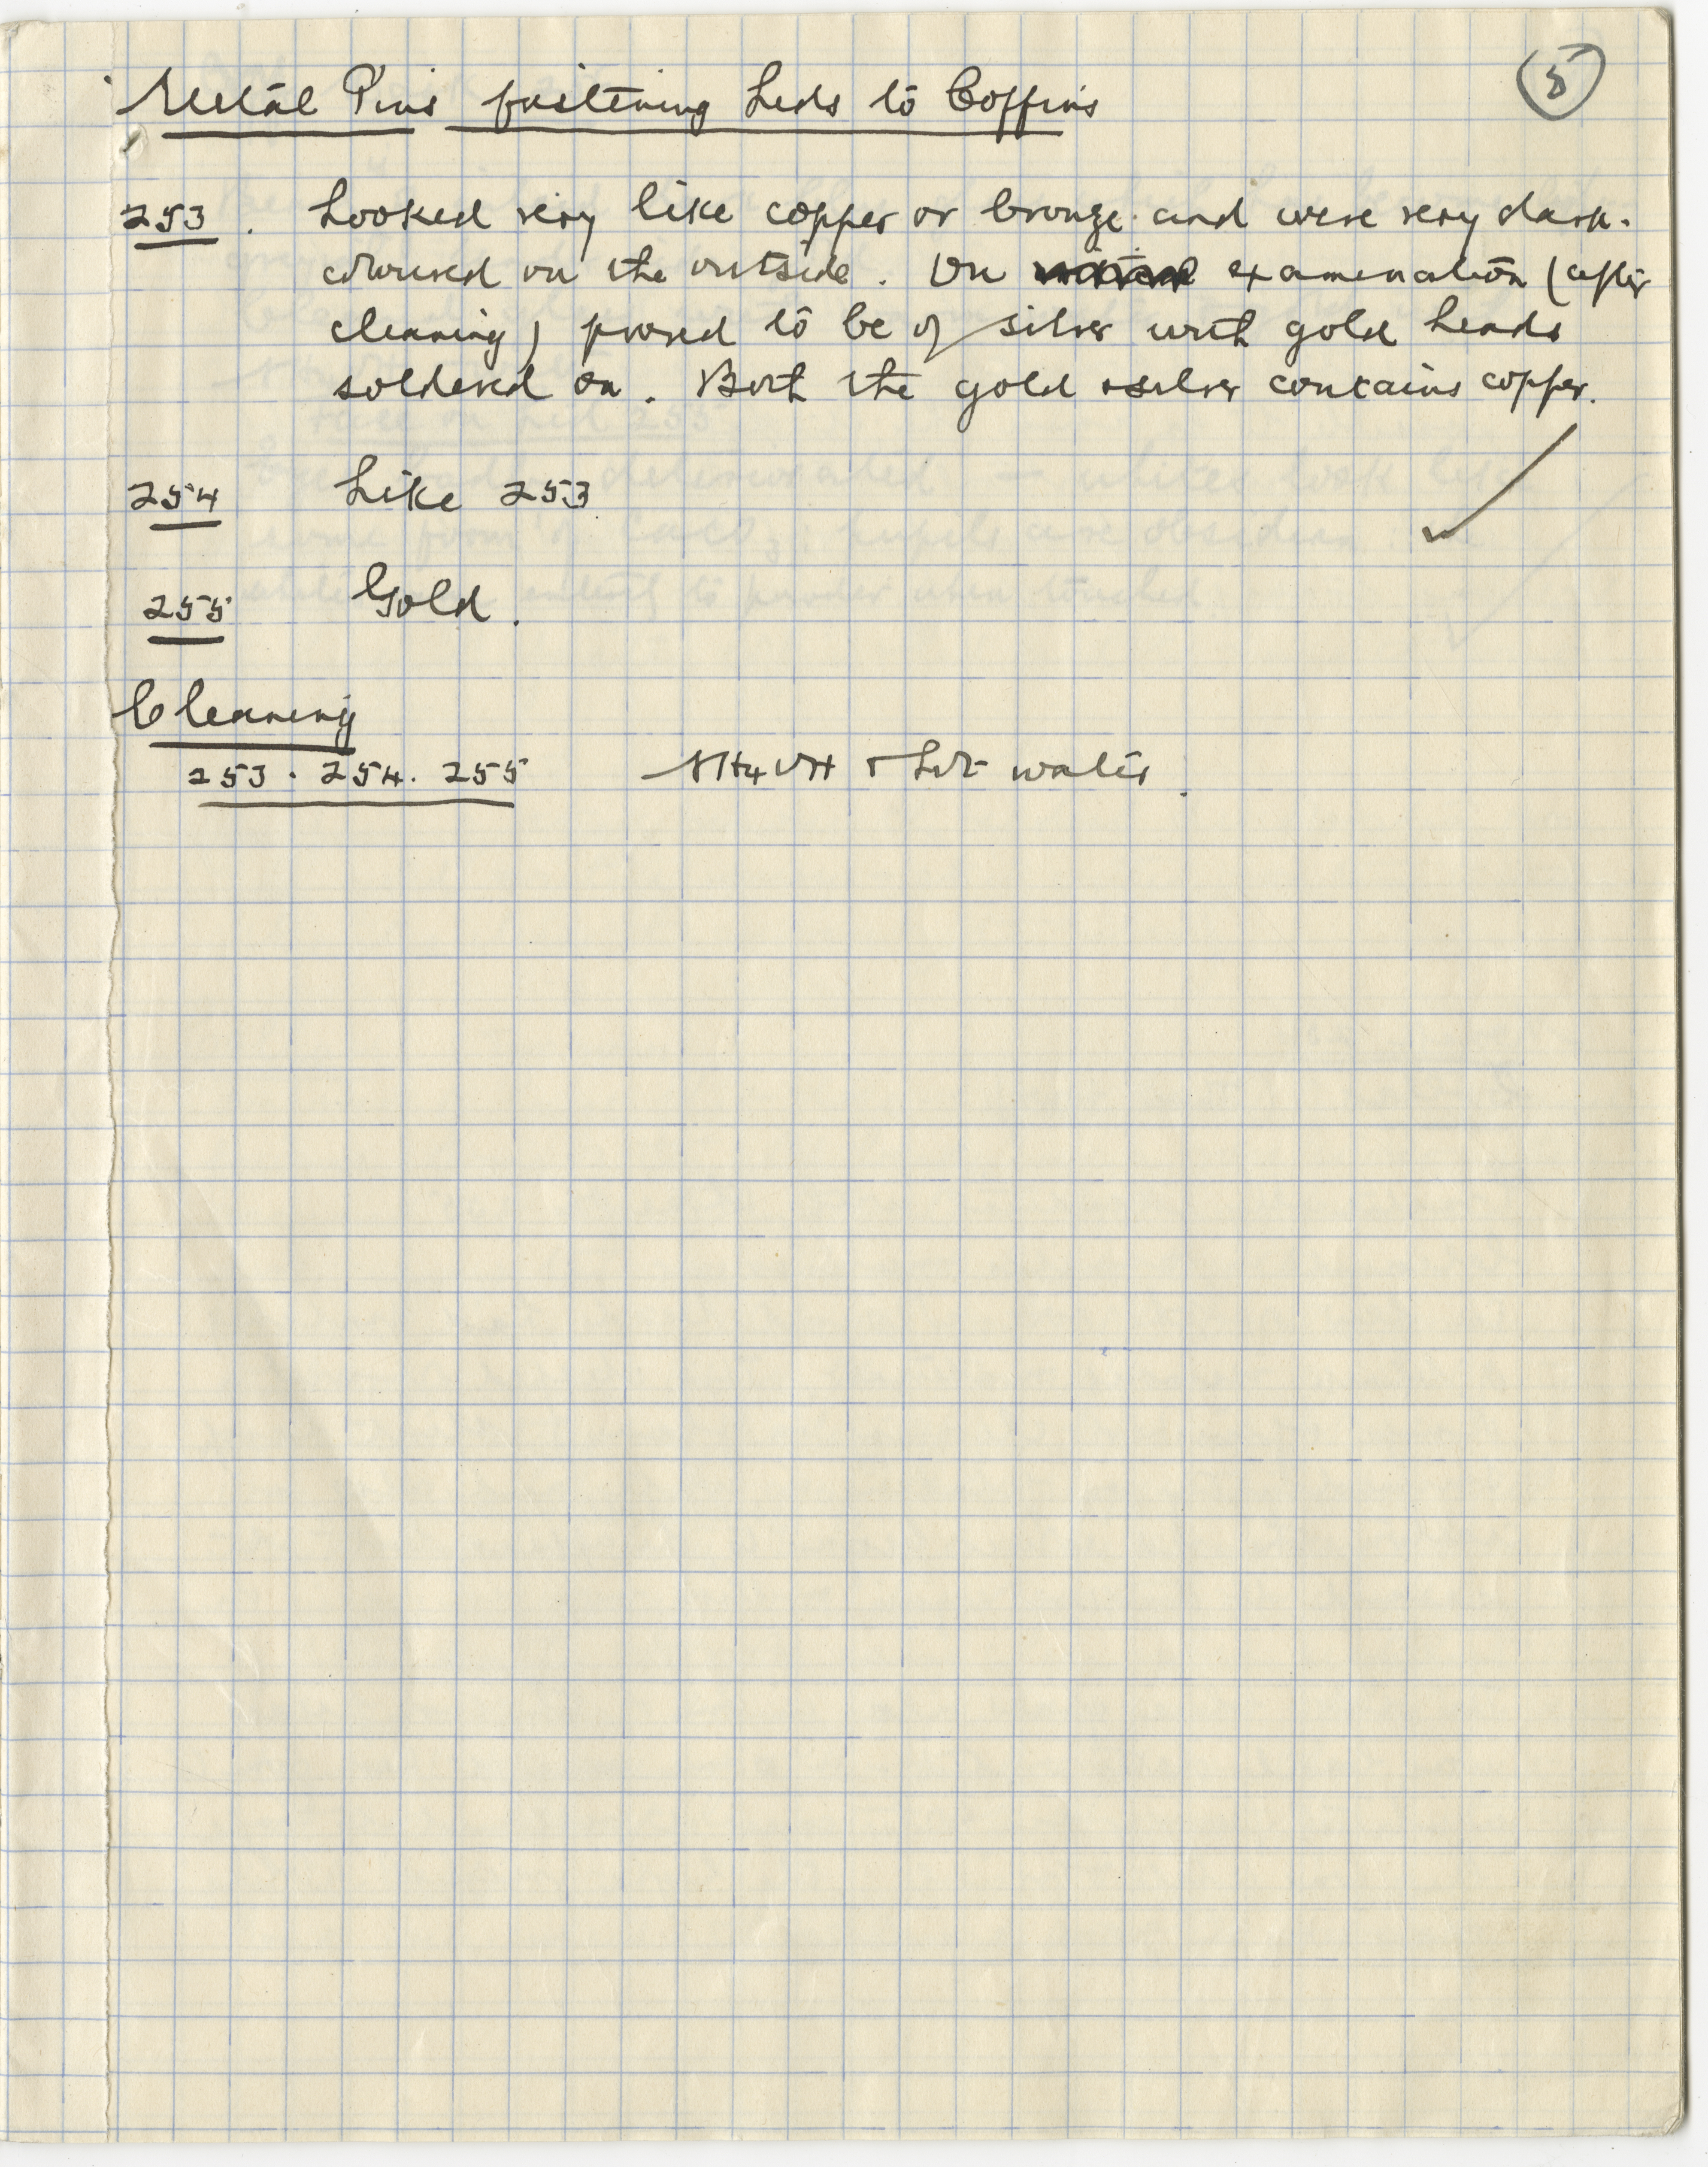 5
Metal Pins fastening Lids to Coffins
253. Looked very like copper or bronze and were very dark-
coloured on the outside. On examination (after
cleaning) proved to be of silver with gold heads
soldered on. Both the gold & silver contains copper.
254 Like 253
255 Gold.
Cleaning
253. 254. 255 NH4OH & hot water.